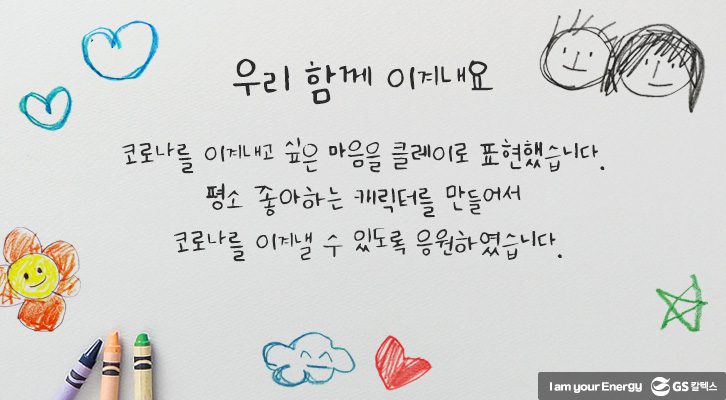 우리 함께 이겨내요
코로나를 이겨내고 싶은 마음을 클레이로 표현했습니다.
평소 좋아하는 캐릭터를 만들어서
코로나를 이겨낼 수 있도록 응원하였습니다.
I am your Energy GS칼텍스